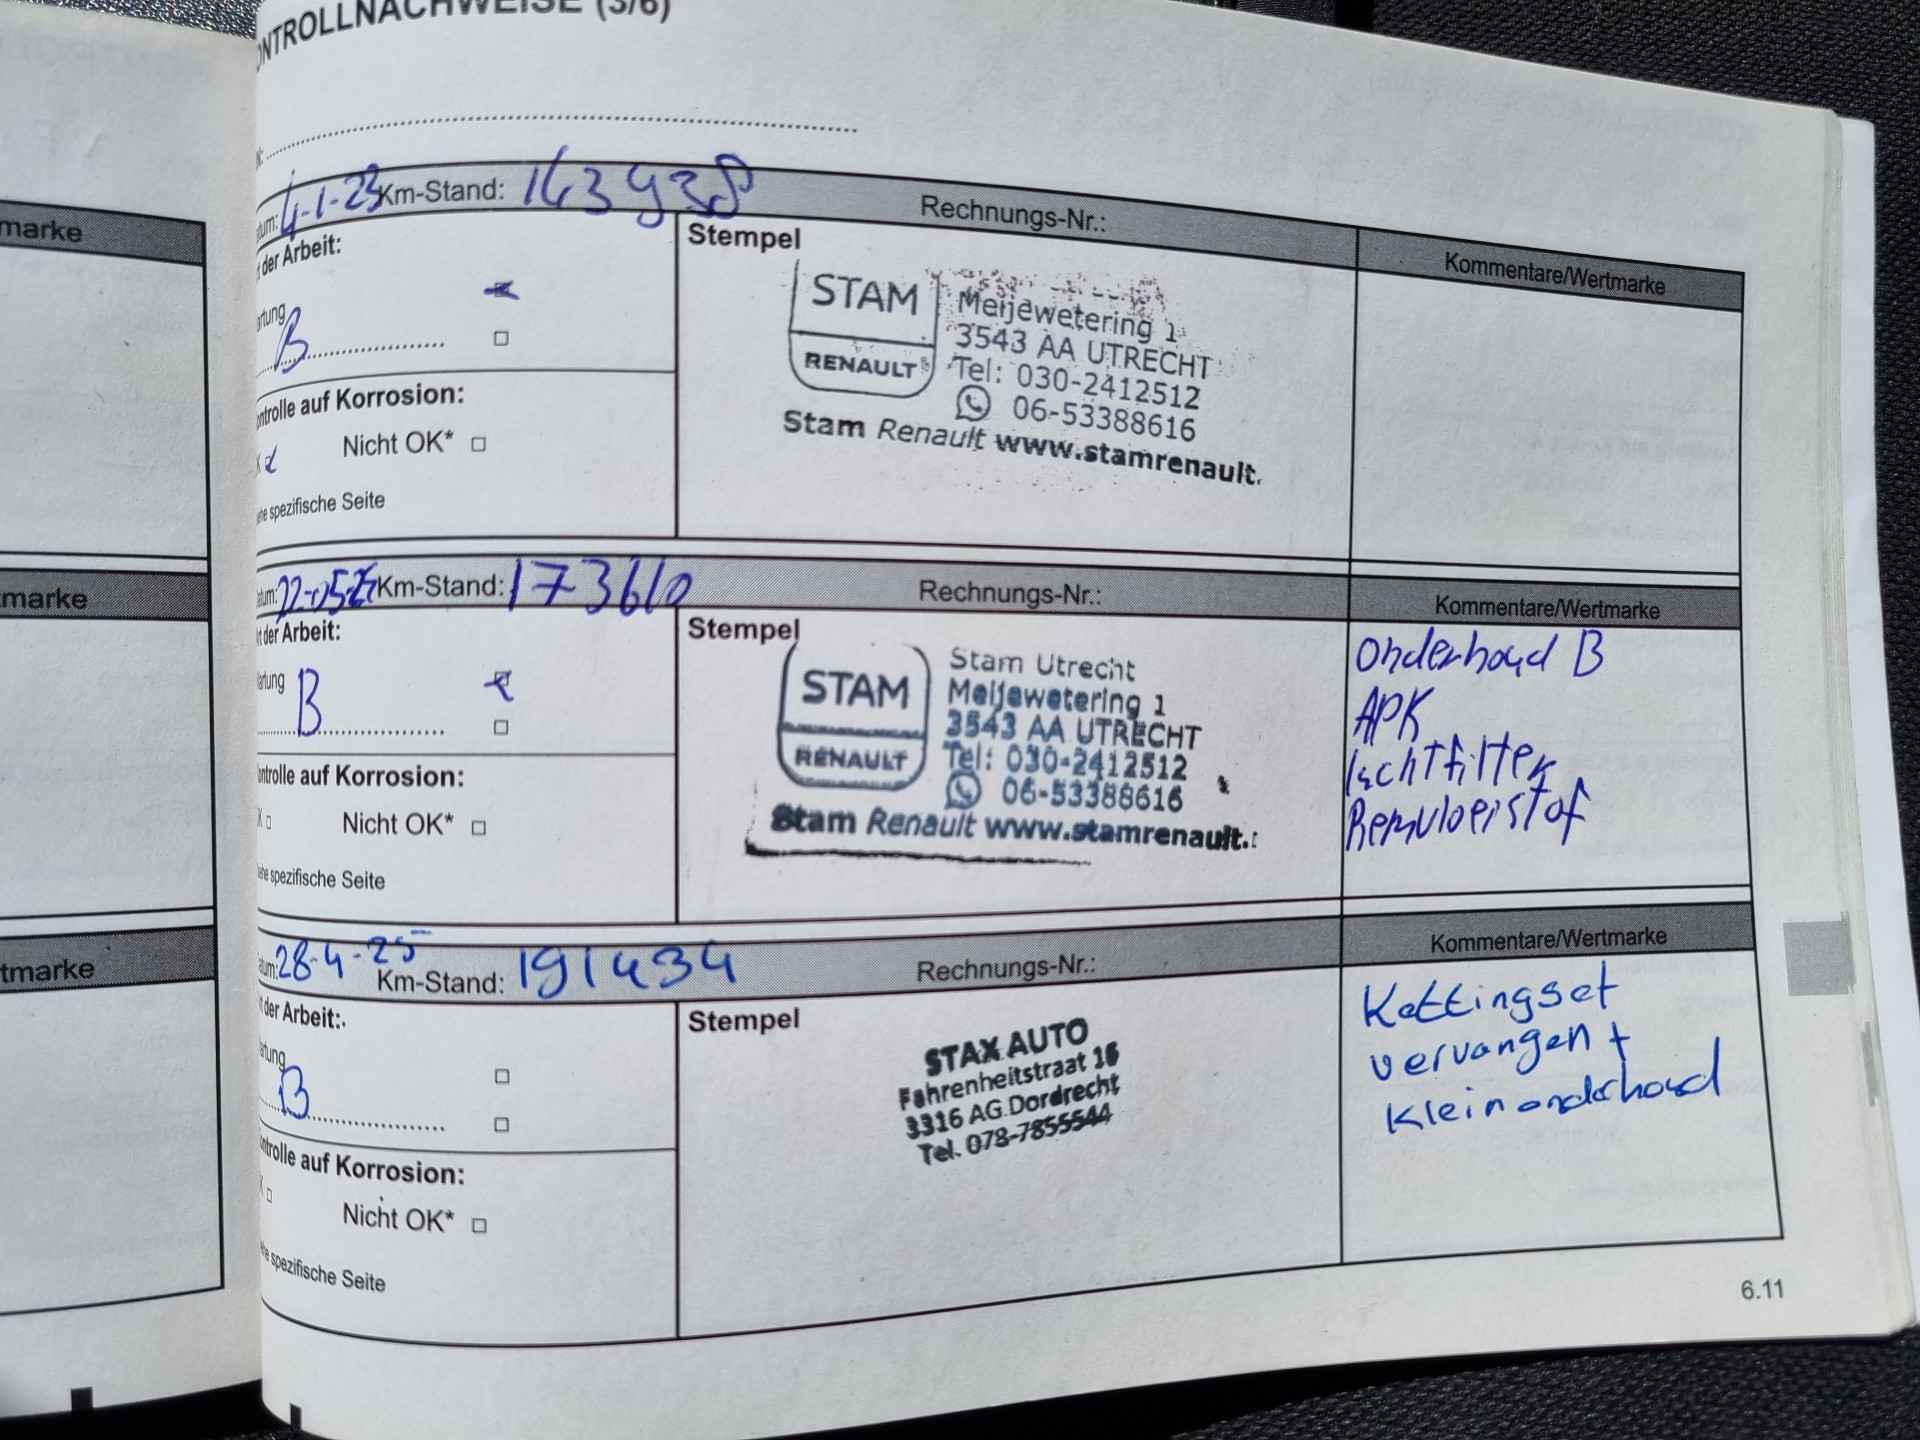 KONTROLLNACHWEISE (3/6)
4-1-23 Km-Stand: 143938
Rechnungs-Nr.:
Kommentare/Wertmarke
der Arbeit:
Stempel
B
STAM
RENAULT
Meijewetering 1
3543 AA UTRECHT
Tel: 030-2412512
06-53388616
Stam Renault www.stamrenault.
Kontrolle auf Korrosion:
Nicht OK* □
spezifische Seite
marke
22-05- Km-Stand: 173610
Rechnungs-Nr.:
Kommentare/Wertmarke
der Arbeit:
Stempel
B
STAM
RENAULT
Stam Utrecht
Meijewetering 1
3543 AA UTRECHT
Tel: 030-2412512
06-53388616
Stam Renault www.stamrenault.
Onderhoud B
APK
luchtfilter
Remvloeistof
Kontrolle auf Korrosion:
Nicht OK* □
spezifische Seite
marke
28-4-25 Km-Stand: 191434
Rechnungs-Nr.:
Kommentare/Wertmarke
der Arbeit:
Stempel
B
STAX AUTO
Fahrenheitstraat 16
3316 AG Dordrecht
Tel. 078-7855544
Kettingset
vervangen +
klein onderhoud
Kontrolle auf Korrosion:
Nicht OK* □
spezifische Seite
tmarke
6.11